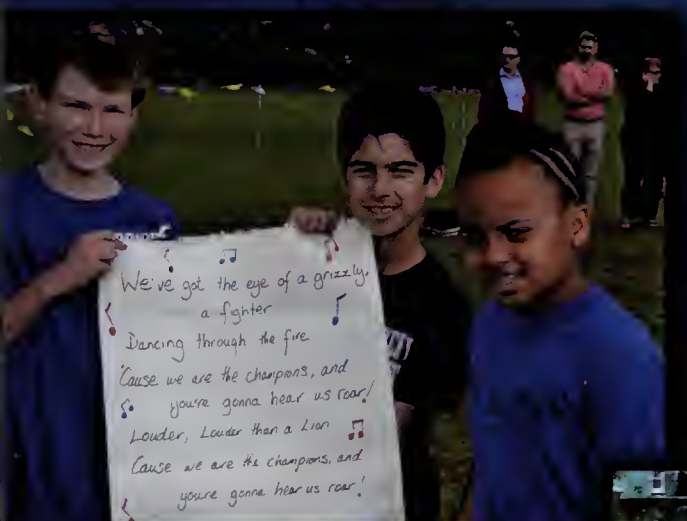 We've got the eye of a grizzly,
a fighter
Dancing through the fire
'Cause we are the champions, and
you're gonna hear us roar!
Louder, Louder than a Lion
Cause we are the champions, and
youre gonna hear us roar!